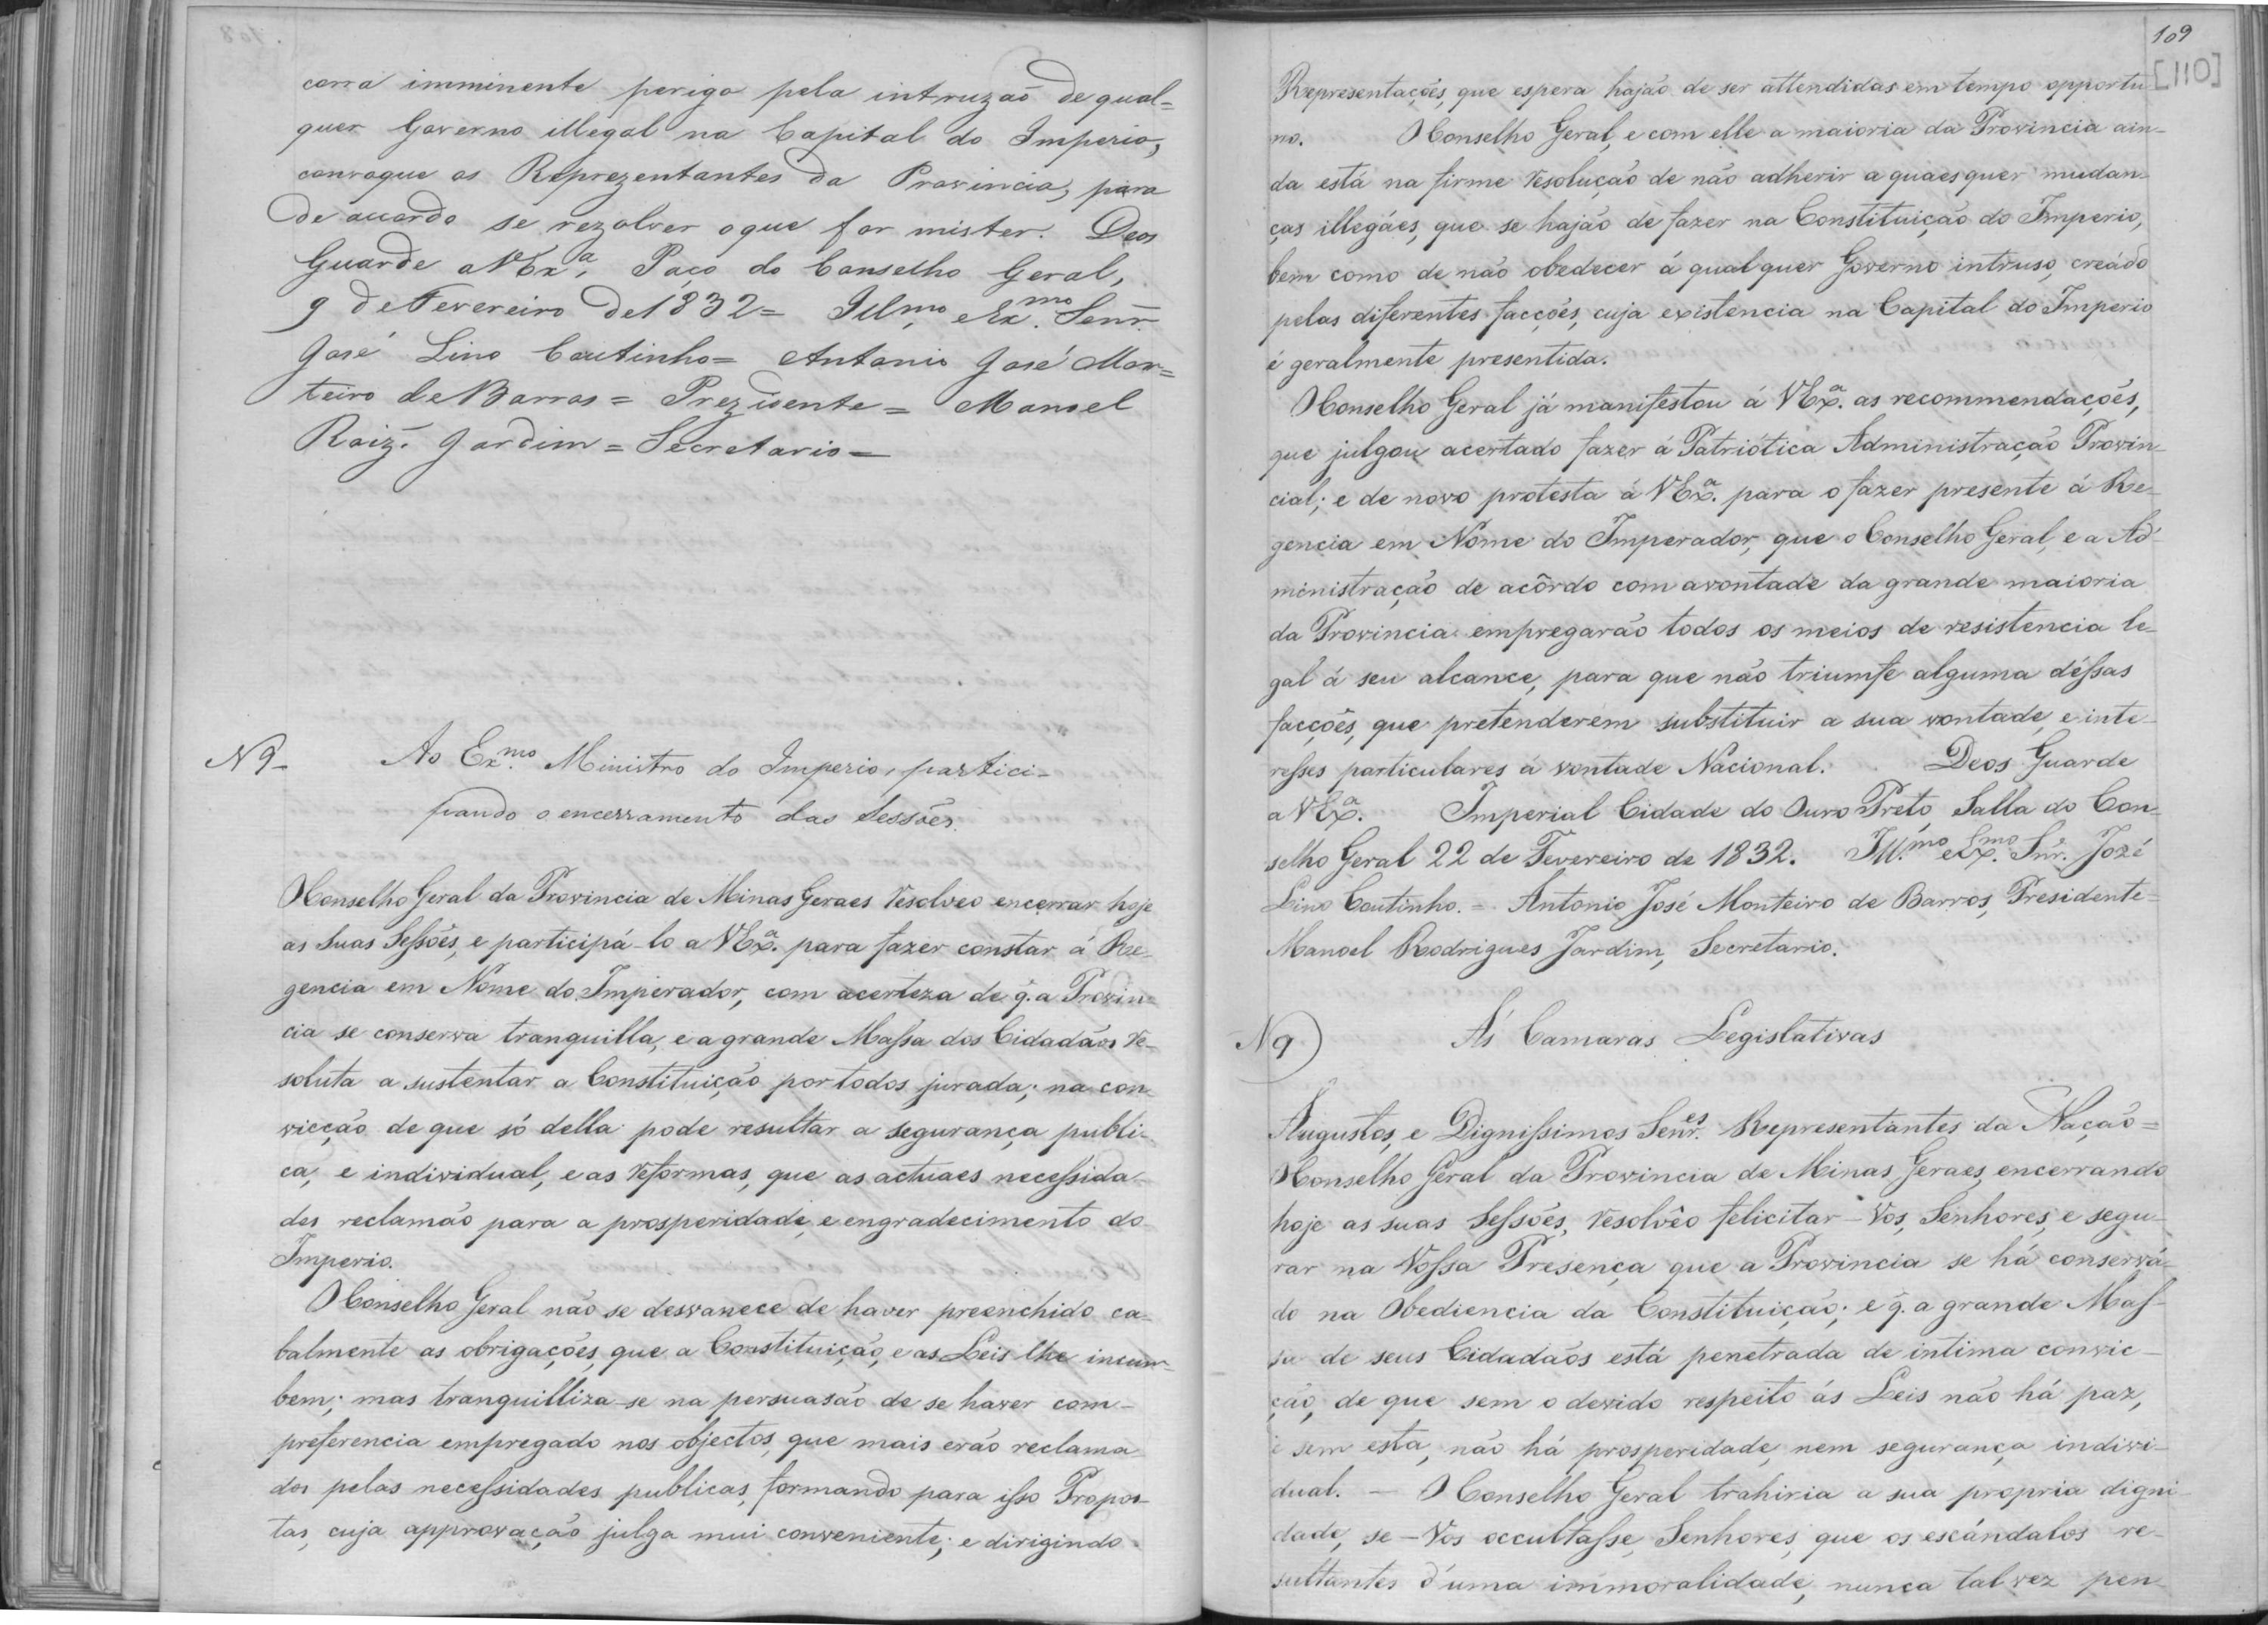 corra imminente perigo pela intruzaõ de qual=
quer Governo illegal na Capital do Imperio,
convoque os Reprezentantes da Provincia, para
de accordo se rezolver oque for mister. Deos
Guarde aVEx.ª Paço do Conselho Geral,
9 de Fevereiro de 1832= Illmo, eEx.mo Senr.
José Lino Coutinho= Antonio José Mon=
teiro de Barros = Prezidente = Manoel
Roiz. Jardim = Secretario =
N 9_ Ao Ex.mo Ministro do Imperio, partici-
pando o encerramento das Sessões.
OConselho Geral da Provincia de Minas Geraes resolveo encerrar hoje
as suas Seſsões, e participá-lo a VExª. para fazer constar á Re-
gencia em Nome do Imperador, com acerteza de q̃. a Provin-
cia se conserva tranquilla, e a grande Maſsa dos Cidadãos re-
soluta a sustentar a Constituição por todos jurada; na con-
vicção de que só della pode resultar a segurança publi-
ca, e individual, e as reformas, que as actuaes neceſsida-
des reclamão para a prosperidade, e engradecimento do
Imperio.
OConselho Geral não se desvanece de haver preenchido ca-
balmente as obrigações, que a Constituição, e as Leis lhe incum-
bem; mas tranquilliza-se na persuasão de se haver com-
preferencia empregado nos objectos, que mais erão reclama-
dos pelas neceſsidades publicas, formando para iſso Propos-
tas, cuja approvação julga mui conveniente; e dirigindo
109
[110]
Representações, que espera hajão de ser attendidas em tempo opportu-
no. OConselho Geral, e com elle a maioria da Provincia ain-
da está na firme resolução de não adherir a quaesquer mudan-
ças illegáes, que se hajão de fazer na Constituição do Imperio,
bem como de não obedecer á qualquer Governo intruso, creádo
pelas diferentes facções, cuja existencia na Capital do Imperio
é geralmente presentida.
OConselho Geral já manifestou á VExª. as recommendações,
que julgou acertado fazer á Patriótica Administração Provin-
cial; e de novo protesta á VExª. para o fazer presente á Re-
gencia em Nome do Imperador, que o Conselho Geral, e a Ad-
ministração de acôrdo com avontade da grande maioria
da Provincia empregarão todos os meios de resistencia le-
gal á seu alcance, para que não triumfe alguma déſsas
facções, que pretenderem substituir a sua vontade, e inte-
reſses particulares á vontade Nacional. Deos Guarde
a VExª. Imperial Cidade do Ouro Preto, Salla do Con-
selho Geral 22 de Fevereiro de 1832. Ill.mo eEx.mo Snr. Jozé
Lino Coutinho. = Antonio José Monteiro de Barros, Presidente=
Manoel Rodrigues Jardim, Secretario.
N 9) Ás Camaras Legislativas
Augustos, e Digniſsimos Senres. Representantes da Nação=
OConselho Geral da Provincia de Minas Geraes, encerrando
hoje as suas Seſsões, resolvêo felicitar-Vos, Senhores, e segu-
rar na Voſsa Presença que a Provincia se há conservá-
do na Obediencia da Constituição; e q̃. a grande Maſ-
sa de seus Cidadãos está penetrada de intima convic-
ção, de que sem o devido respeito ás Leis não há paz,
e sem esta, não há prosperidade, nem segurança indivi-
dual. — OConselho Geral trahiria a sua propria digni-
dade, se-Vos occultaſse, Senhores, que os escándalos re-
sultantes d'uma immoralidade, nunca talvez pen-